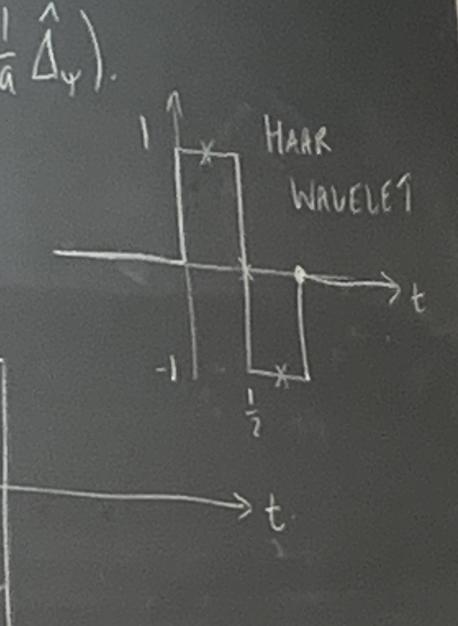 1/a Δ̂_ψ).
1
HAAR
WAVELET
t
-1
1/2
t.